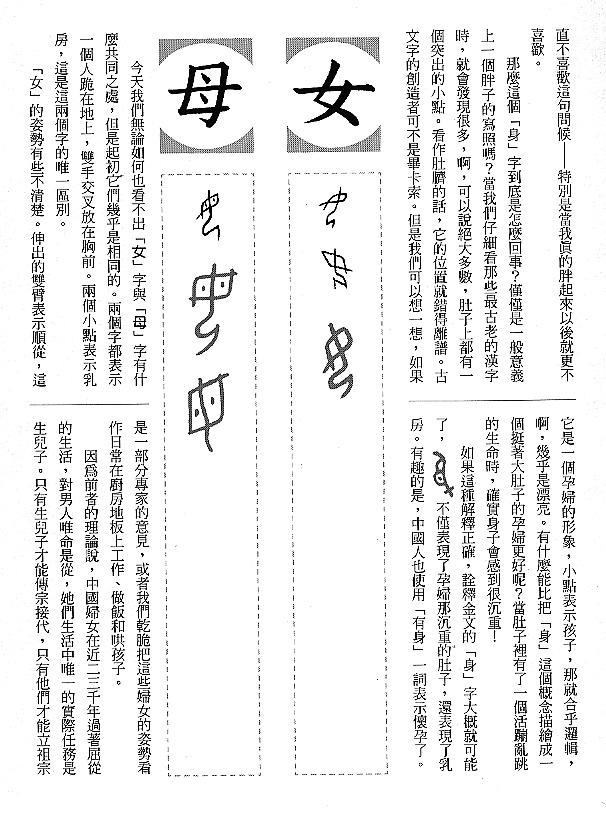 直不喜歡這句問候——特別是當我眞的胖起來以後就更不
喜歡。
那麼這個「身」字到底是怎麼回事?僅僅是一般意義
上一個胖子的寫照嗎?當我們仔細看那些最古老的漢字
時,就會發現很多,啊,可以說絕大多數,肚子上都有一
個突出的小點。看作肚臍的話,它的位置就錯得離譜。古
文字的創造者可不是畢卡索。但是我們可以想一想,如果
它是一個孕婦的形象,小點表示孩子,那就合乎邏輯,
啊,幾乎是漂亮。有什麼能比把「身」這個概念描繪成一
個挺著大肚子的孕婦更好呢?當肚子裡有了一個活蹦亂跳
的生命時,確實身子會感到很沉重!
如果這種解釋正確,詮釋金文的「身」字大概就可能
了,不僅表現了孕婦那沉重的肚子,還表現了乳
房。有趣的是,中國人也使用「有身」一詞表示懷孕了。
女
母
今天我們無論如何也看不出「女」字與「母」字有什
麼共同之處,但是起初它們幾乎是相同的。兩個字都表示
一個人跪在地上,雙手交叉放在胸前。兩個小點表示乳
房,這是這兩個字的唯一區別。
「女」的姿勢有些不清楚。伸出的雙臂表示順從,這
是一部分專家的意見,或者我們乾脆把這些婦女的姿勢看
作日常在廚房地板上工作、做飯和哄孩子。
因爲前者的理論說,中國婦女在近二三千年過著屈從
的生活,對男人唯命是從,她們生活中唯一的實際任務是
生兒子。只有生兒子才能傳宗接代,只有他們才能立祖宗